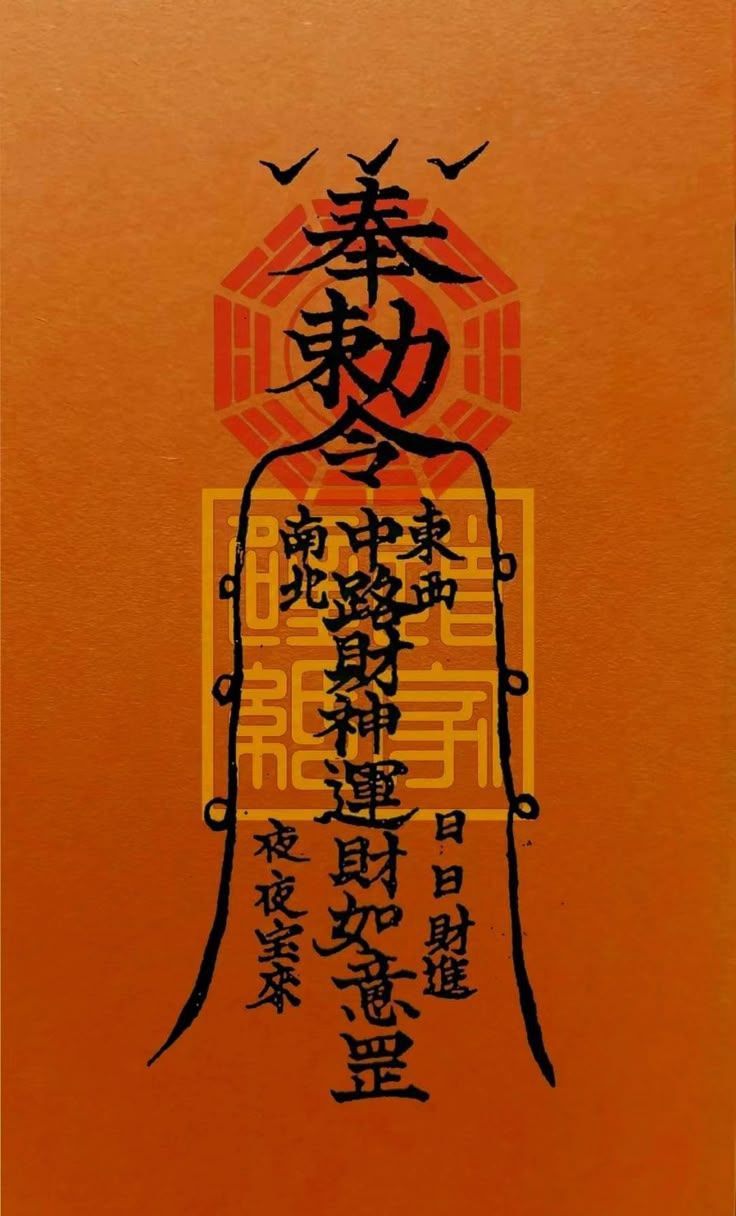 奉
勅
令
東西
中路財神運財如意罡
南北
日日財進
夜夜宝來